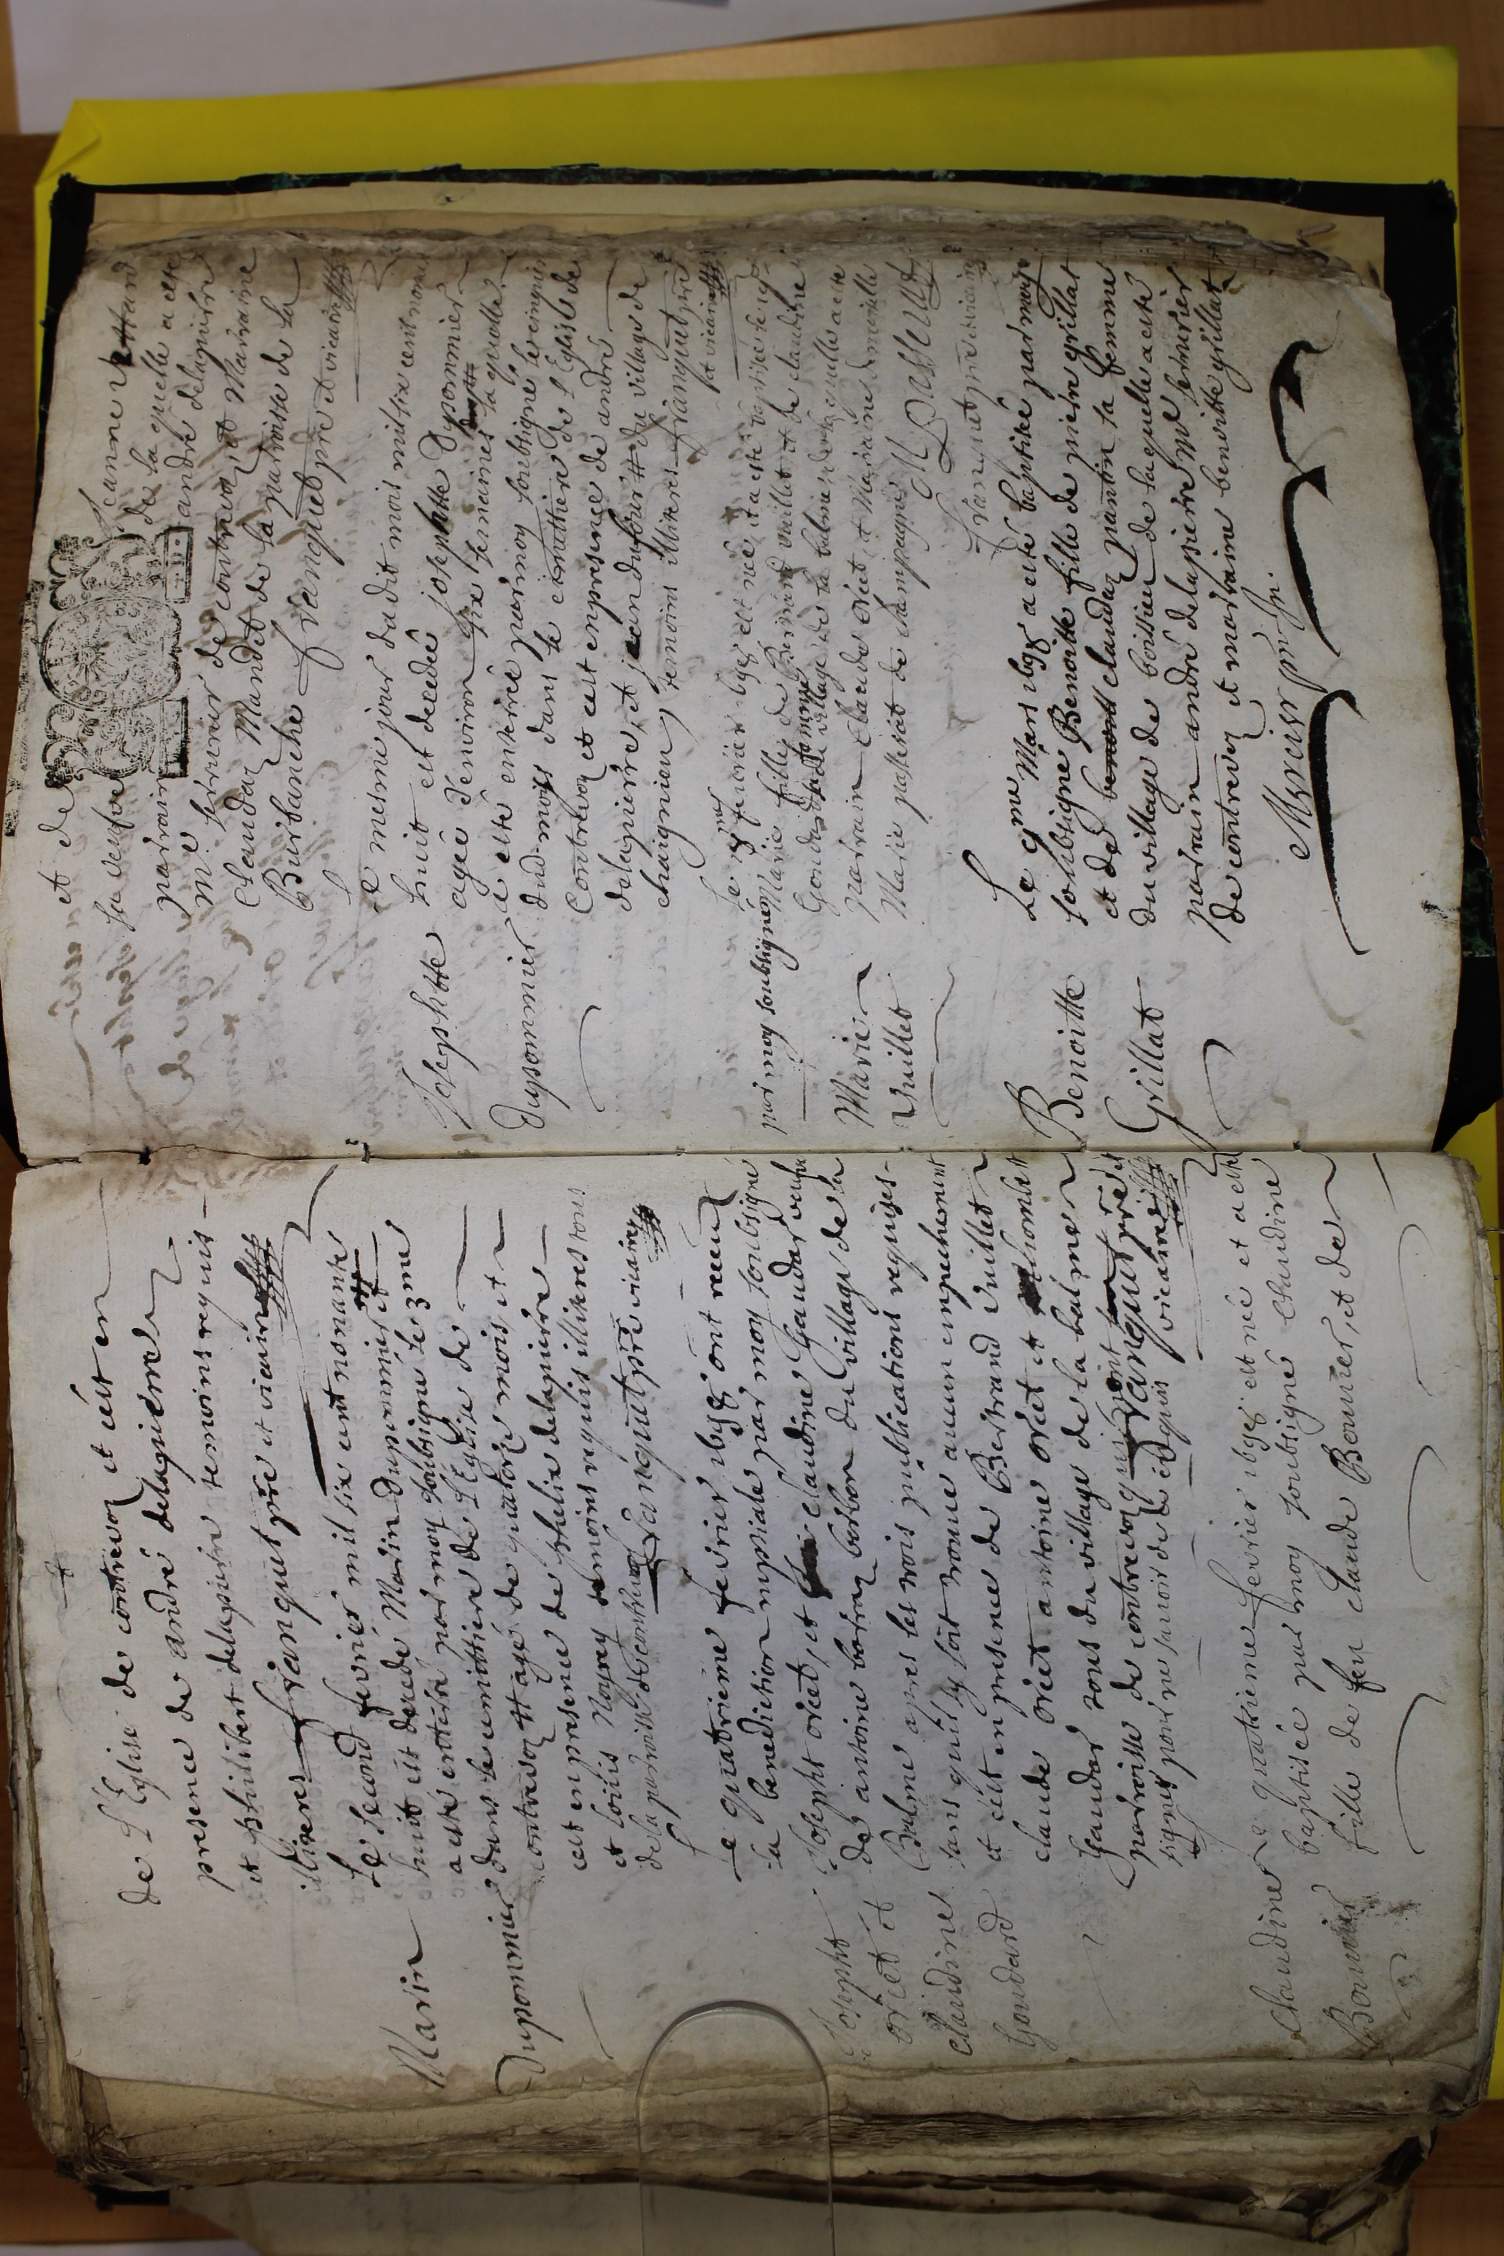 de l'Eglise de contrevoz et c'est en
presence de andré delapierre
et philibert delapierre temoins requis
illiteres franquet pre et vicaire
Le second fevrier mil six cent nonante
huit est decedé Marin Dupommier et
a esté enterré par moy soubsigné le 3me
dans le cemittiere de l'Eglise de
contrevoz agé de quatorze mois et
cest en presence de phelix delapierre
et louis Noyrey temoins requis illiteres tous
de la paroisse de contrevoz franquet pre vicaire
Marin
Dupommier
Le quatrieme fevrier 1698 ont receu
la benediction nuptiale par moy soubsigné
Joseph oriet, et claudine Gaudar veufve
de antoine borraz borbon du village de la
Balme apres les trois publications requises
sans qu'il se soit trouvé aucun enpechement
et c'est en presence de Bertrand Vuillet
claude oriet antoine oriet et
Gaudar tous du village de la balme
parroisse de contrevoz qui n'ont
signes pour ne savoir de ce requis franquet pre et vicaire
Joseph
oriet et
Claudine
Goudard
Le quatrieme fevrier 1698 est née et a esté
baptisée par moy soubsigné Claudine
fille de feu Claude Bouvier, et de
Claudine
Bouvier
et de Jeanne
sa veufve de la quelle a esté
parrain andré delapierre
Me serrurier de contrevoz et Marraine
Claudaz Mandet de la parroisse de la
Burbanche franquet pre et vicaire
Le mesme jour dudit mois mil six cent nona
huit est decedée josephtte Dupommier
agée d'environ six semaines la quelle
a esté enterrée par moy soubsigné le cinquie
dud mois dans le cimithiere de l'Eglise de
Contrevoz et c'est en presence de andré
delapierre, et jean dufour du village de
chaignieu temoins illiteres franquet pre
et vicaire
Josephtte
Dupommier
Le fevrier 1698 est née et a esté baptisée
par moy soubsigné Marie fille de Bernard Vuillet et de claudine
Goudar sa femme du village de la balme de la quelle a esté
parrain Claude oriet et Marraine demoiselle
Marie passerat de champagne M Passerat
franquet pre et vicaire
Marie
Vuillet
Le 9me Mars 1698 a esté baptisée par moy
sobsigné Benoitte fille de pierre grillat
et de claudaz pantin sa femme
du village de boissieu de la quelle a esté
parrain andré delapierre me serrurier
de contrevoz et marraine benoitte grillat
Benoitte
Grillat